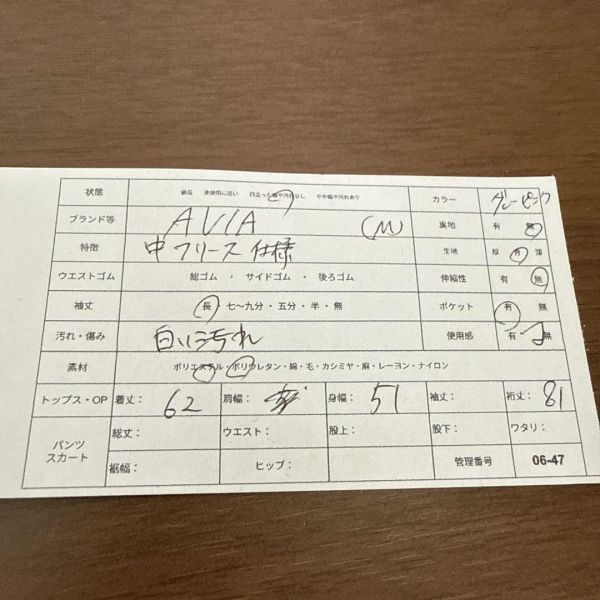 状態 新品 未使用に近い 目立った傷や汚れなし やや傷や汚れあり カラー グレーピンク
ブランド等 AVIA (M) 裏地 有 無
特徴 中フリース仕様 生地 厚 普 薄
ウエストゴム 総ゴム ・ サイドゴム ・ 後ろゴム 伸縮性 有 無
袖丈 長・七〜九分・五分・半・無 ポケット 有 無
汚れ・傷み 白い汚れ 使用感 有 無
素材 ポリエステル・ポリウレタン・綿・毛・カシミヤ・麻・レーヨン・ナイロン
トップス・OP 着丈: 62 肩幅: 身幅: 51 袖丈: 裄丈: 81
パンツ スカート 総丈: ウエスト: 股上: 股下: ワタリ:
裾幅: ヒップ: 管理番号 06-47